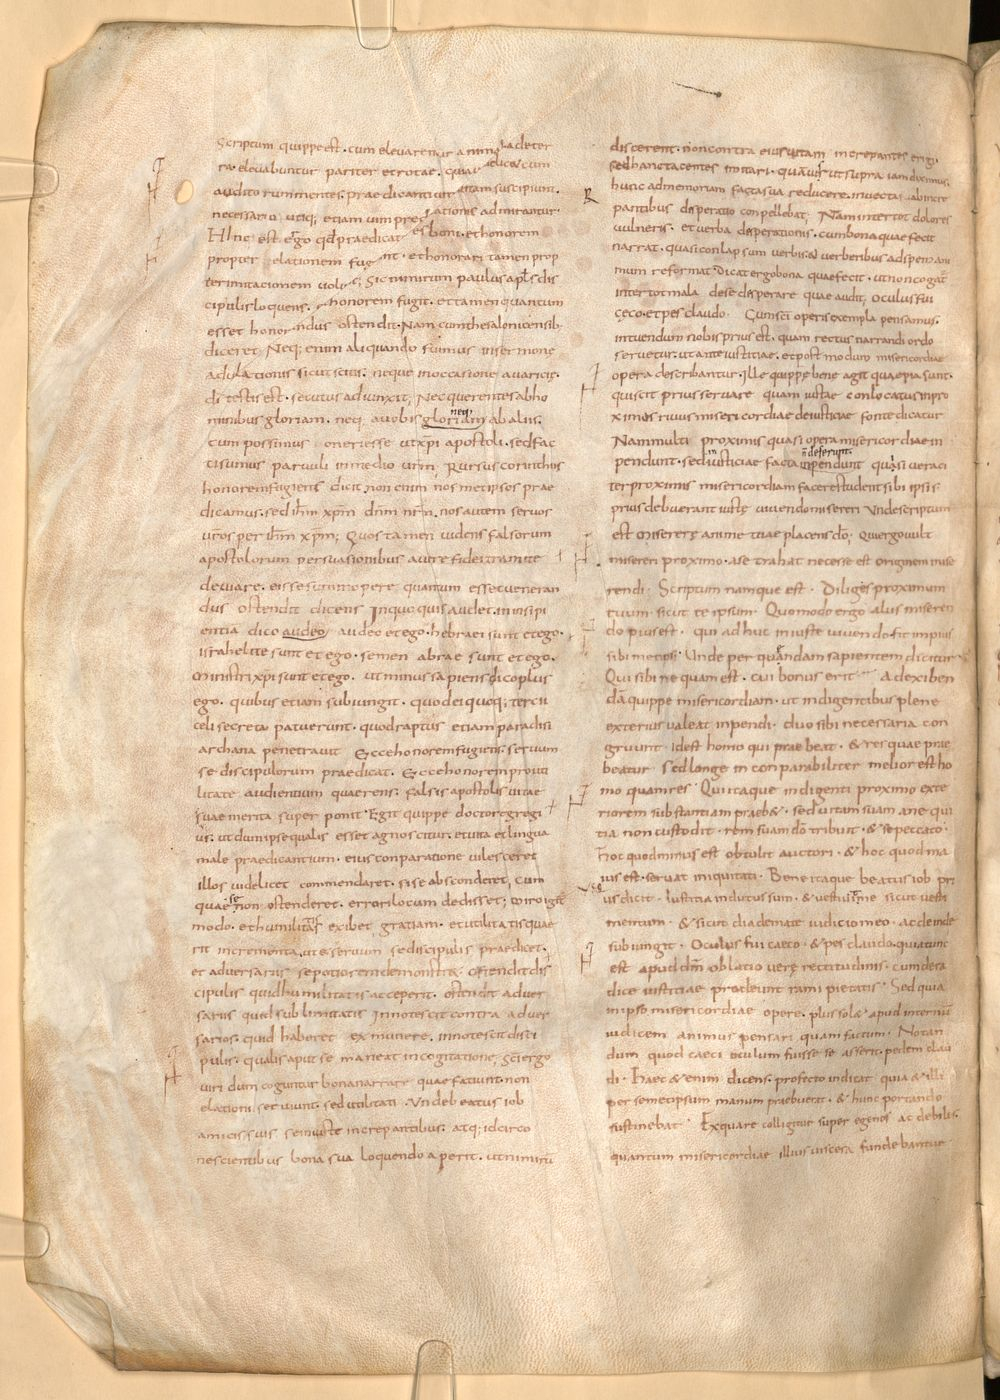 Scriptum quippe est. cum elevarentur animalia de ter
ra. elevabuntur pariter et rotae. quia
audito rum mentes. praedicantium vitam suscipiunt.
necessario utiq; etiam vim admirantur.
Hinc est ergo qd praedicat boni. et honorem
propter elationem fugiunt. et honorari tamen prop
ter imitationem volunt; Sic nimirum paulus apls dis
cipulis loquens. & honorem fugit. et tamen quantum
esset honorandus ostendit. Nam cum thesalonicensib;
diceret; Neq; enim aliquando fuimus in sermone
adulationis sicut scitis. neque in occasione avaritię.
ds testis est. secutus adiunxit; Nec querentes ab ho
minibus gloriam. neq; a vobis gloriam neq; ab aliis.
cum possimus oneri esse ut xpi apostoli. sed fac
ti sumus parvuli in medio vrm; Rursus corinthiis
honorem fugiens dicit. non enim nos metipsos prae
dicamus. sed ihm xpm dnm nrm. nos autem servos
vros per ihm xpm; Quos tamen videns falsorum
apostolorum persuasionibus a vire fidei tramite
deviare. eis se summopere quantum esset veneran
dus ostendit dicens In quo quis audet. in insipi
entia dico audeo et ego. hebraei sunt et ego.
israhelite sunt et ego. semen abrae sunt et ego.
Ministri xpi sunt et ego. ut minus sapiens dico plus
ego. quibus etiam subiungit. quod ei quoq; tercii
celi secreta patuerunt. quod raptus etiam paradisi
archana penetravit Ecce honorem fugiens. servum
se discipulorum praedicat. Ecce honorem pro uti
litate audientium quaerens. falsis apostolis vitae
suae merita superponit Egit quippe doctor egregi
us. ut dum ipse qualis esset agnoscitur. et vita et lingua
male praedicantium. eius conparatione vilesceret
illos videlicet commendaret. si se absconderet; Cum
quae se non ostenderet. errori locum dedisset; Miro igit
modo. et humilitatis exibet gratiam. et utilitatis quae
rit incrementa. ut & servum se discipulis praedicet.
et adversariis se potiorem demonstret. Ostendit dis
cipulis quid humilitatis acceperit. ostendit adver
sariis quid sublimitatis Innotescit contra adver
sarios. quid haberet ex munere. innotescit disci
pulis. qualis apud se maneat in cogitatione; Sci ergo
viri dum coguntur bona narrare quae faciunt. non
elationi serviunt. sed utilitati. Unde beatus iob
amicis suis se iniuste increpantibus. atq; idcirco
nescientibus bona sua loquendo aperit. ut nimirum
discerent. non contra eius vitam increpantes erigi
sed hanc tacentes imitari. quamvis ut supra iam diximus.
hunc ad memoriam facta sua reducere. invectae ab incre
pantibus desperatio conpellebat; Nam inter tot dolores
vulneris. et verba desperationis. cum bona quae fecit
narrat. quasi conlapsum verbis & verberibus ad spem ani
mum reformat Dicat ergo bona quae fecit. ut non cogat
inter tot mala de se desperare quae audit; Oculus fui
ceco. et pes claudo. Cum sci operis exempla pensamus.
intuendum nobis prius est. quam rectus narrandi ordo
servetur. ut ante iustitiae. et post modum misericordiae
opera describantur. Ille quippe bene agit quae pia sunt.
qui scit prius servare quam iustae conlocatus in pro
ximos rivus misericordiae de iusticiae fonte dicatur
Nam multi proximis quasi opera misericordiae in
pendunt. sed iniusticiae facta non deserunt inpendunt quasi veraci
ter proximis misericordiam facere student. sibi ipsis
prius debuerant iuste vivendo misereri Unde scriptum
est Miserere anime tuae placens do; Qui ergo vult
misereri proximo. a se trahat necesse est originem mise
rendi. Scriptum namque est. Diliges proximum
tuum. sicut te ipsum. Quomodo ergo alius miseren
do pius est. qui adhuc iniuste vivendo fit impius
sibi metipsi. Unde per quandam sapientem dicitur
Qui sibi nequam est. cui bonus erit Ad exiben
dā quippe misericordiam. ut indigentibus plene
exterius valeat inpendi. duo sibi necessaria con
gruunt. Id est homo qui praebeat. & res quae prae
beatur Sed longe in conparabiliter melior est ho
mo quam res. Qui itaque indigenti proximo exte
riorem substantiam praeb&. sed vitam suam a ne qui
tia non custodit. rem suam do tribuit. & se peccato.
Hoc quod minus est obtulit auctori. & hoc quod ma
ius est. servat iniquitati. Bene itaque beatus iob pri
us dicit. Iustitia indutus sum. & vestivi me sicut vesti
mentum. & sicut diademate iudicio meo. ac deinde
subiungit. Oculus fui caeco. & pes claudo. quia tunc
est apud dm oblatio verę rectitudinis. cum de ra
dice iustitiae prodeunt rami pietatis. Sed quia
in ipso misericordiae opere. plus sol& apud internū
iudicem animus pensari quam factum. Notan
dum quod caeci oculum fuisse se asserit. pedem clau
di. Haec &enim dicens. profecto indicat quia & illi
per semetipsum manum praebuerat. & hunc portando
sustinebat. Ex quare colligitur super egenos ac debiles.
quantum misericordiae illius viscera fundebantur